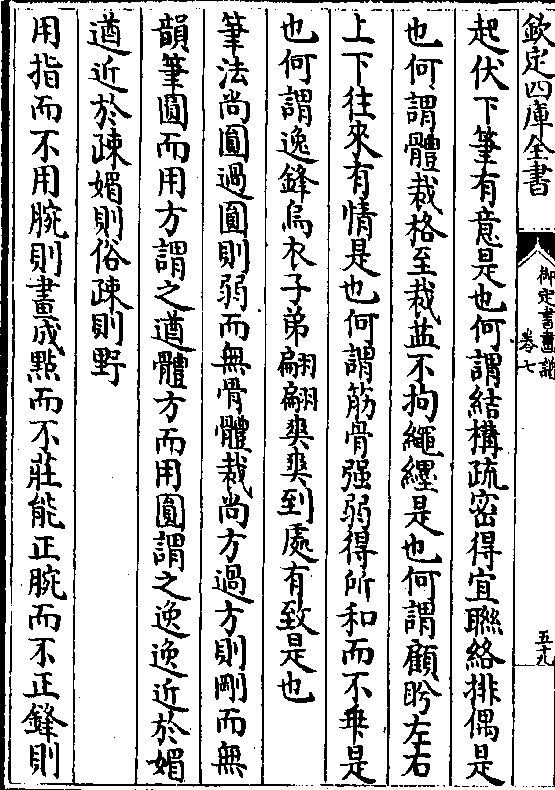 欽定四庫全書
御定書畫譜
卷七
五十九
起伏下筆有意是也何謂結構疏密得宜聯絡排偶是
也何謂體裁格至裁益不拘繩纆是也何謂顧盼左右
上下往來有情是也何謂筋骨强弱得所和而不乖是
也何謂逸鋒烏衣子弟翩翩爽爽到處有致是也
筆法尚圓過圓則弱而無骨體裁尚方過方則剛而無
韻筆圓而用方謂之遒體方而用圓謂之逸逸近於媚
遒近於疎媚則俗疎則野
用指而不用腕則畫成點而不莊能正腕而不正鋒則